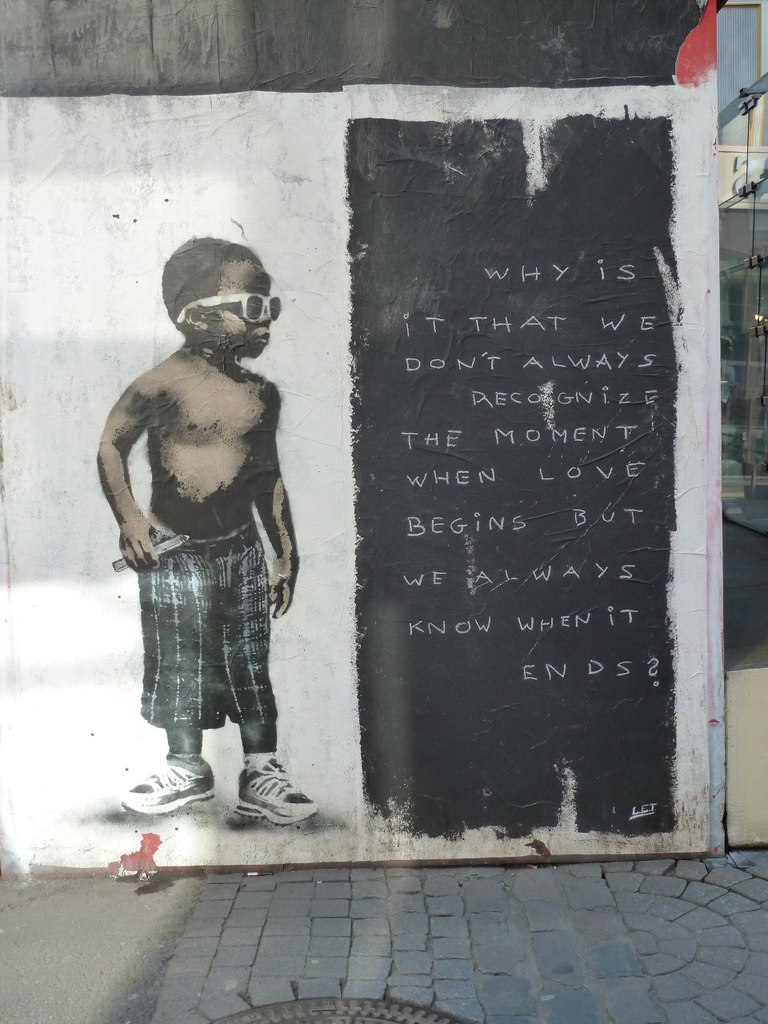 WHY iS
iT THAT WE
DON'T ALWAYS
RECOGNiZE
THE MOMENT
WHEN LOVE
BEGiNS BUT
WE ALWAYS
KNOW WHEN iT
ENDS?
L.E.T